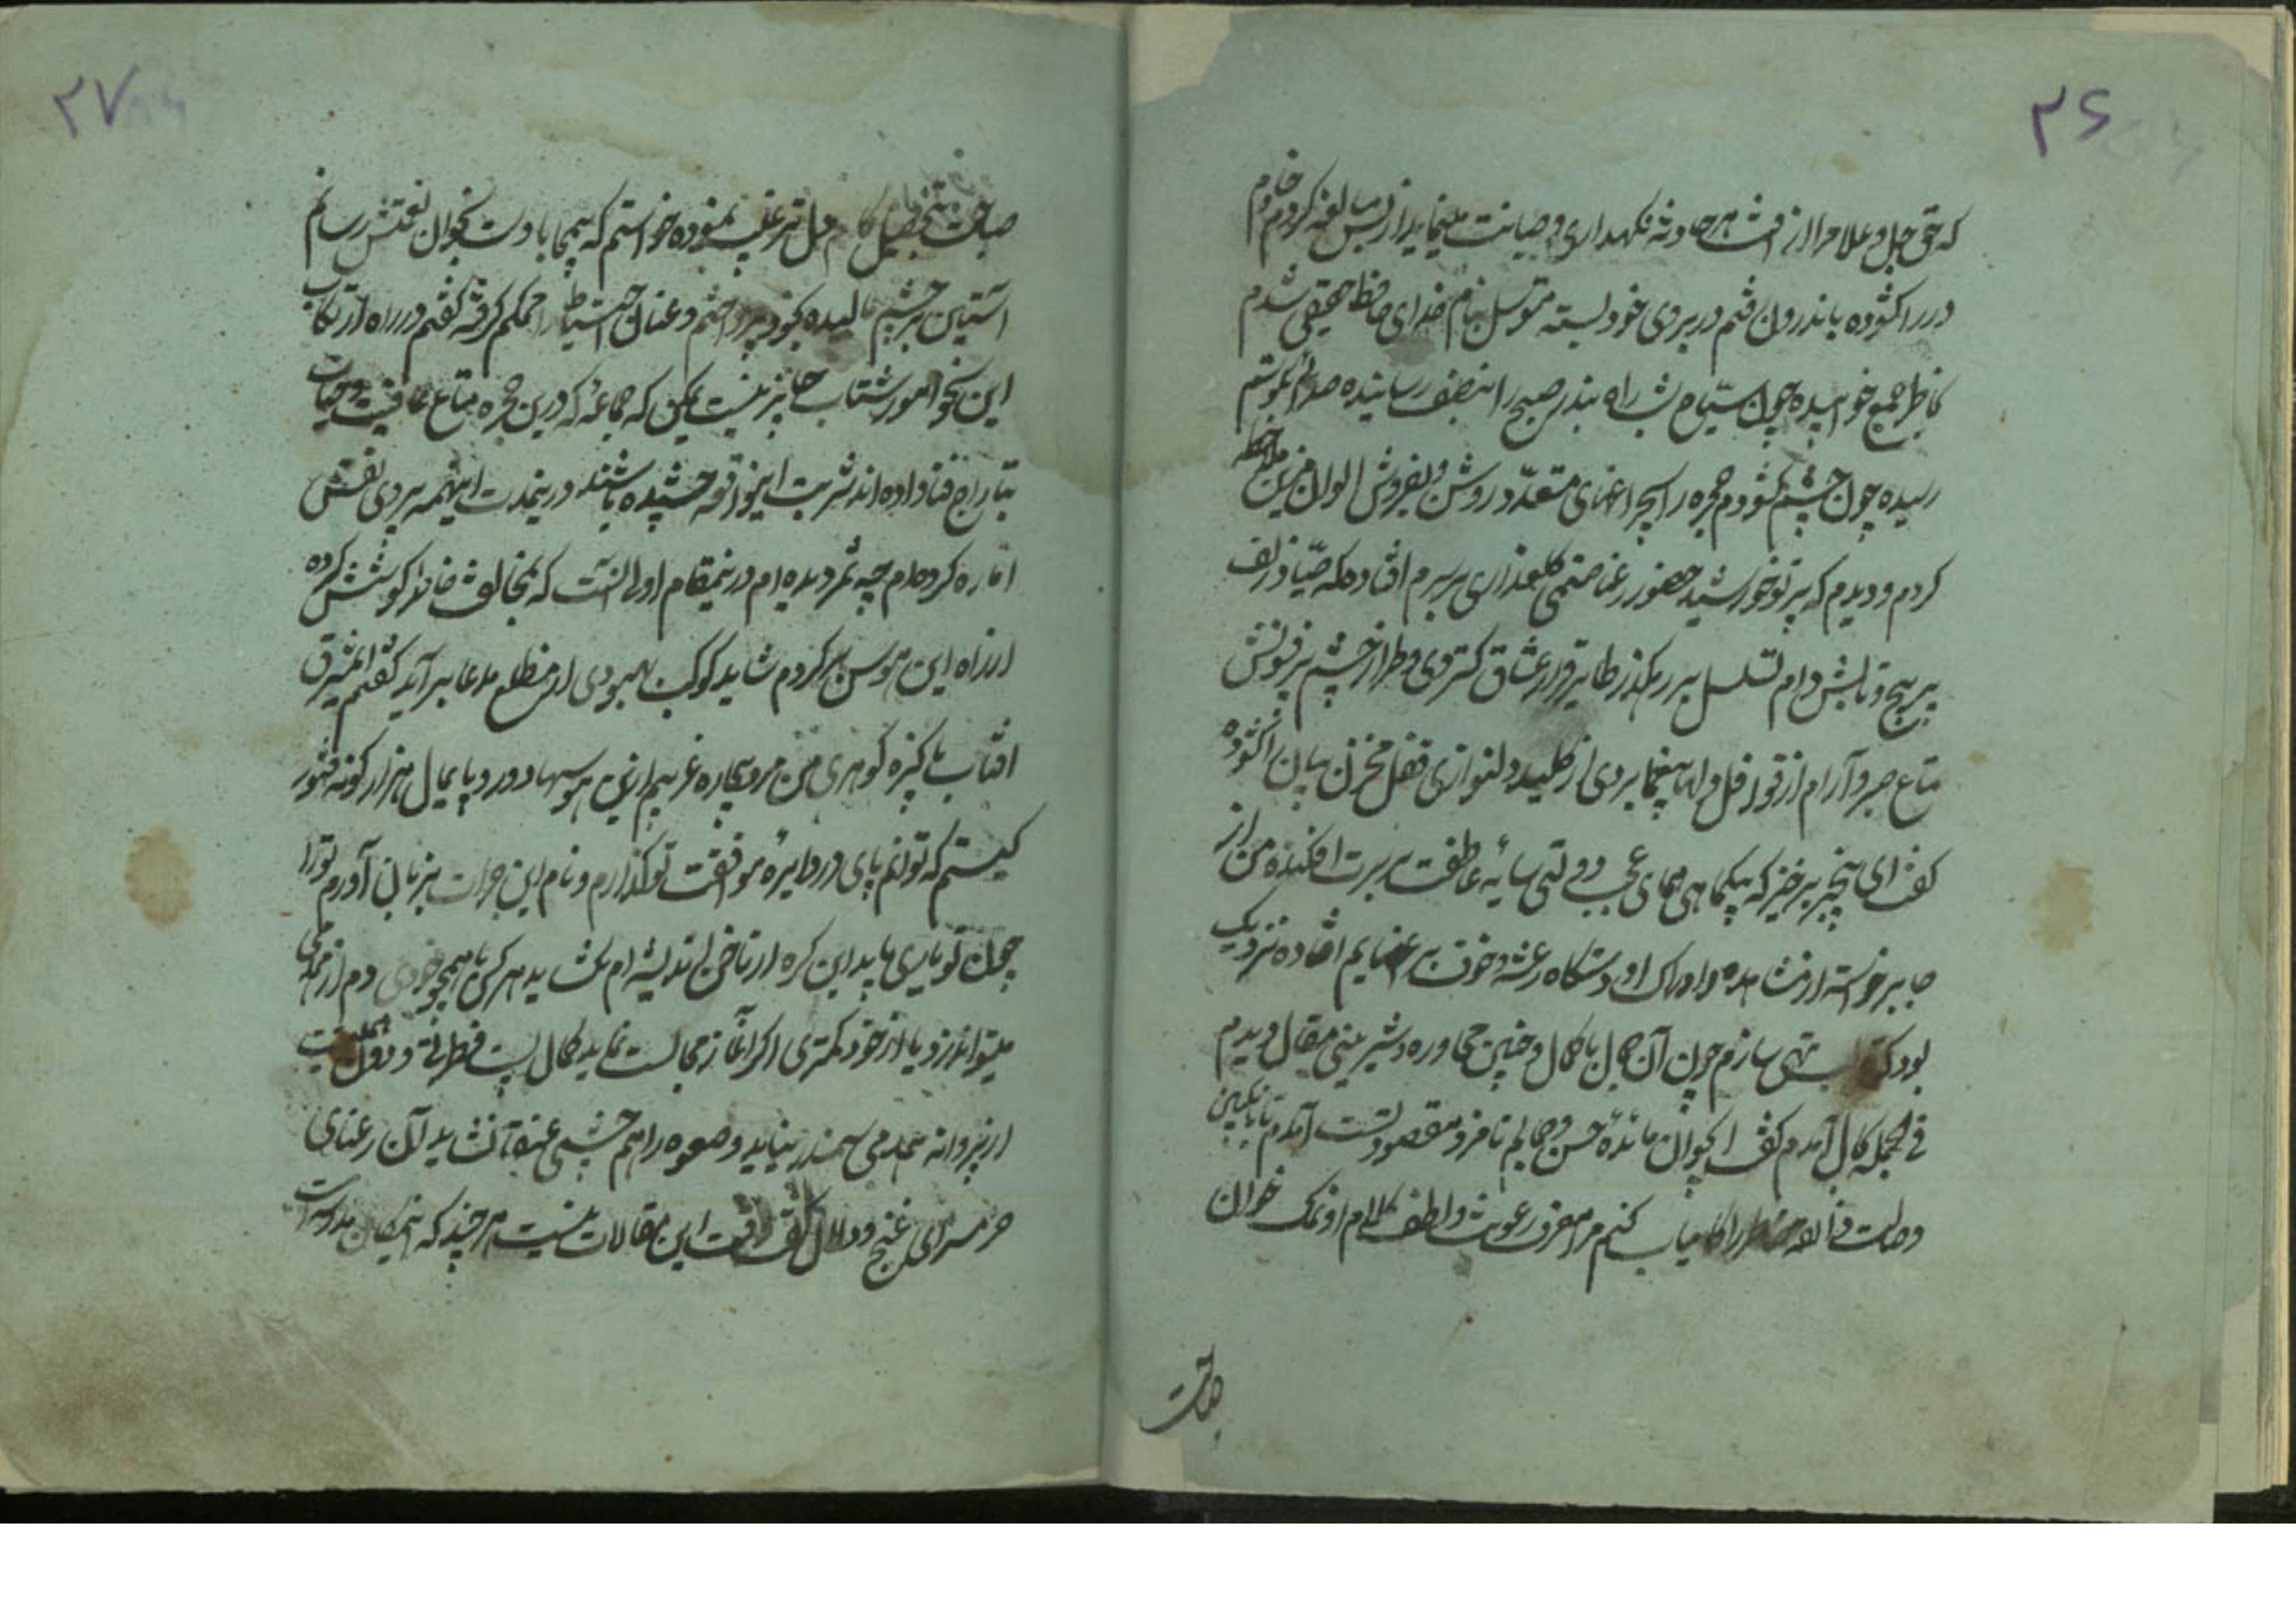 ۲۶
که حق جل و علا مرا از آفت هر حادثه نگهداری و صیانت مینماید از بس مبالغه کردم خادم
در را کشوده باندرون رفتم در بروی خود بسته متوسل بنام خدای حافظ حقیقی شدم
بخاطر جمع خوابیده چون سیاح شب راه بندر صبح را بنصف رسانیده صدائی بگوشم
رسیده چون چشم کشودم حجره را بچراغهای متعدد روشن و بفروش الوان مزین ملاحظه
کردم و دیدم که پرتو خورشید حضور رعنا صنمی گلعذاری بر سرم افتاده که صیاد زلف
پر پیچ و تابش دام تسلسل بر رهگذر طایر قرار عشاق گستردی و طرار چشم پر فنونش
متاع صبر و آرام از قوافل دلها بیغما بردی از کلید دلنوازی قفل مخزن بیان را کشوده
گفت ای بیخبر برخیز که همای عجب دولتی سایه عاطفت بر سرت افکنده من از
جا برخواسته از مشاهده و ادراک او دستگاه رعشه و خوف بر اعضایم افتاده نزدیک
بود که تهی سازم چون آن جمال با کمال و چنین محاوره و شیرینی مقال دیدم
فی الجمله بحال آمدم گفت ای جوان مائده حسن و جمالم نامزد مقصودتست آمدم تا با تمکین
وصلت ذائقه خاطر را کامیاب کنم مرا معزز رعونت و لطف کلام او نمک خوان
صباحت
۲۷
صباحت بتحصیل کام دل ترغیب نموده خواستم که بیمحابا دست بخوان نعمتش رسانم
آستین بر چشم مالیده بخود پرداختم و عنان احتیاط را محکم گرفته گفتم در راه ارتکاب
این نحو امور شتاب جایز نیست ممکن که جماعه که درین حجره متاع عافیت و حیات
بتاراج فنا داده اند شربت اینواقعه چشیده باشند در ینمدت اینهمه پیروی نفس
اماره کرده ام چه ثمر دیده ام درینمقام اولی آنست که بمخالفت خاطر کوشش کرده
ازراه این هوس برگردم شاید کوکب بهبودی از مطلع مدعا برآید گفتم ای مشرق
آفتاب پاکیزه گوهری من مرد بیچاره غریبم ازین هوسها دور و پایمال هزار گونه فتور
کیستم که توانم پای در دایره موافقت تو گذارم و نام این جرات بزبان آورم ترا
چون تو یاری باید این گره از ناخن اندیشه ام نگشاید هر کس با همچو خودی دم از همدمی
میتواند زد با از خود کمتری اگر آغاز مجالست نماید کمال پست فطرتی و دون همتیست
از پروانه همدمی سمندر نیاید و صعوه را هم چشمی عنقا نشاید آن رعنای
حرمسرای غنج و دلال گفت وقت این مقالات نیست هر چند که